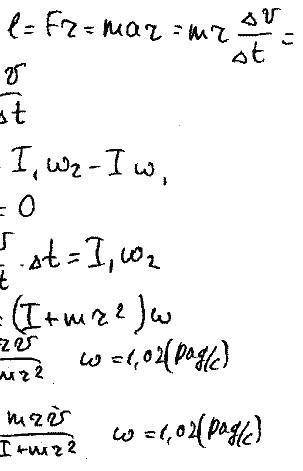 l = Fr = mar = mr Δv/Δt =
v/Δt
- I₁ω₂ - Iω₁
= 0
v/t · Δt = I₁ω₂
= (I + mr²)ω
rv/mr² ω = 1,02 (рад/с)
mrv/I + mr² ω = 1,02 (рад/с)